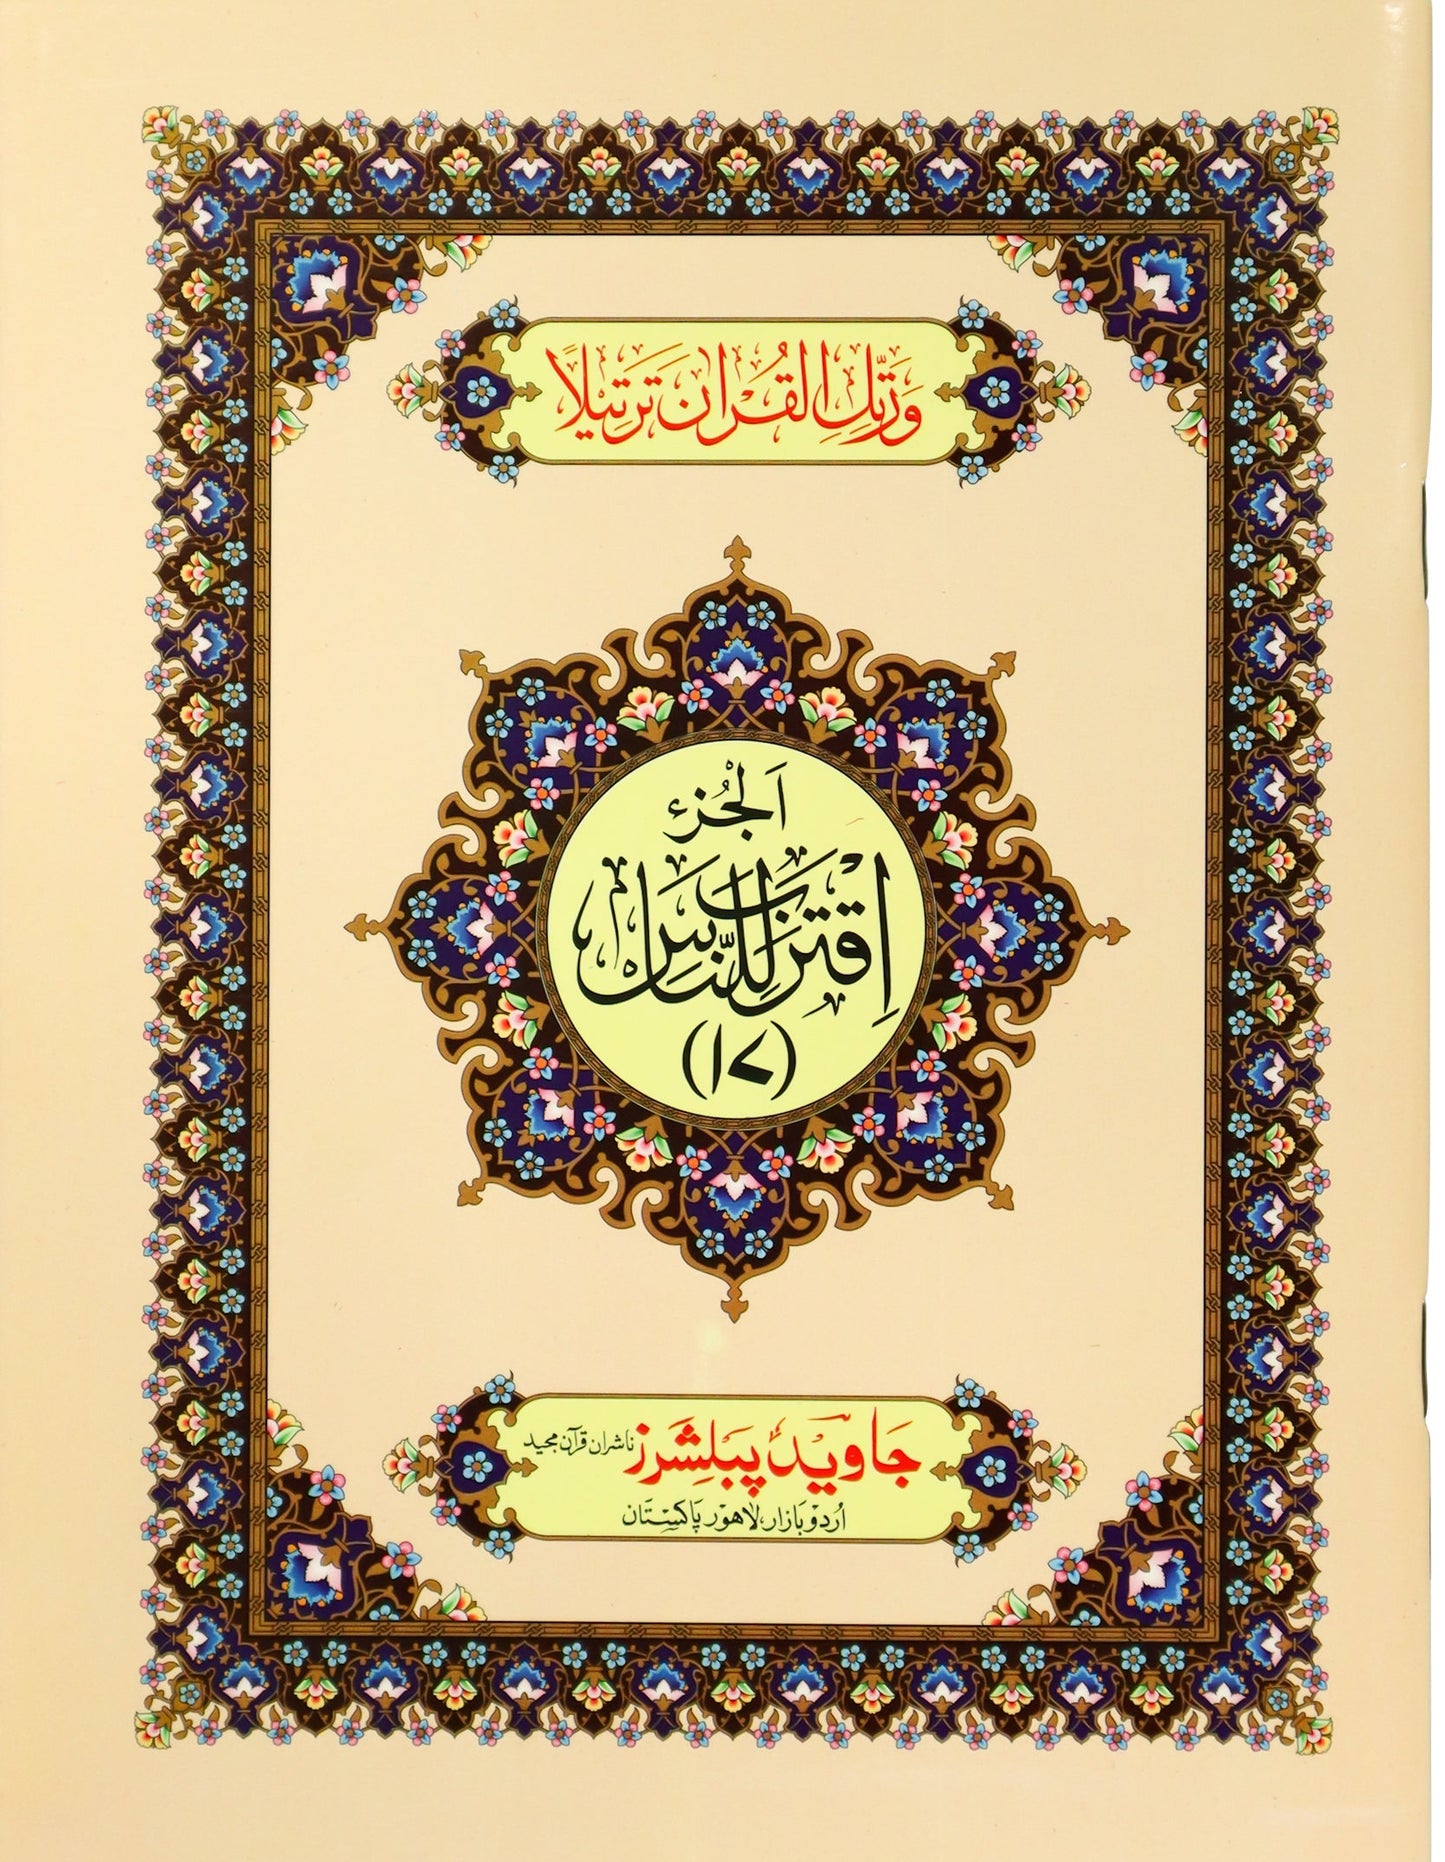 وَرَتِّلِ الْقُرْاٰنَ تَرْتِيْلًا
اَلْجُزْء
اِقْتَرَبَ لِلنَّاسِ
(۱۷)
جَاوید پبلِشَرز ناشران قرآن مجید
اُردو بازار، لاهور پاکستان